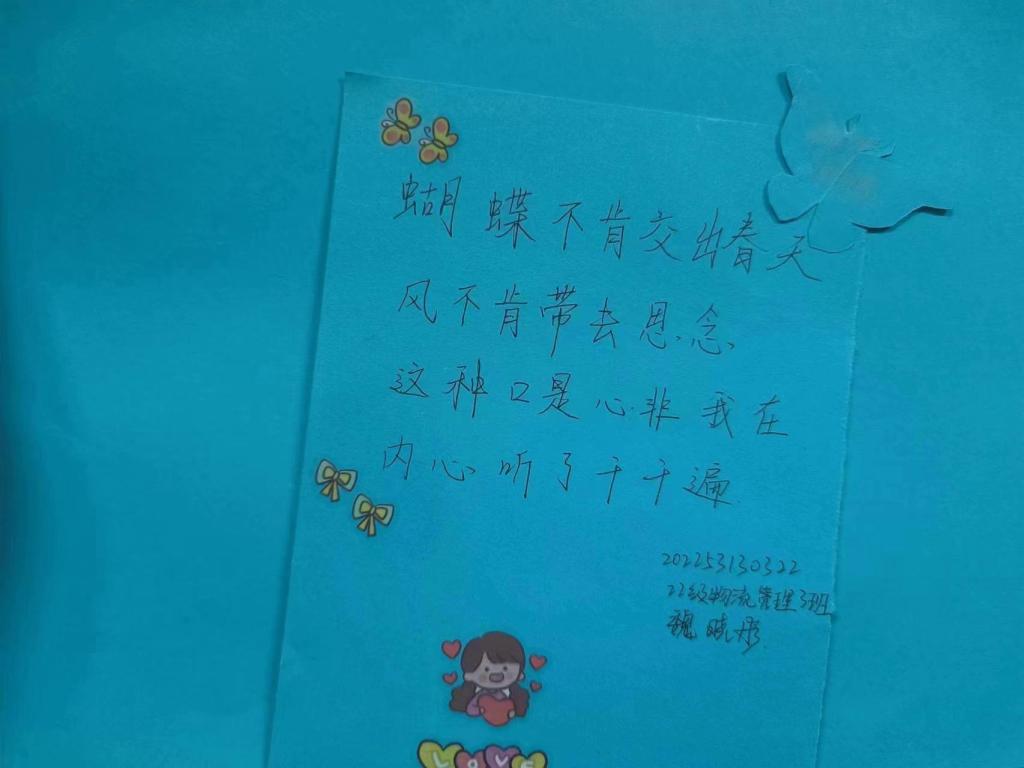 蝴蝶不肯交出春天
风不肯带去思念
这种口是心非我在
内心听了千千遍
202253130322
22级物流管理3班
魏晓彤
Love